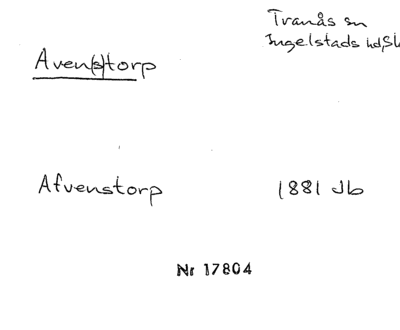 Tranås sn
Ingelstads hd, Sk
Aven(s)torp
Afvenstorp 1881 Jb
Nr 17804